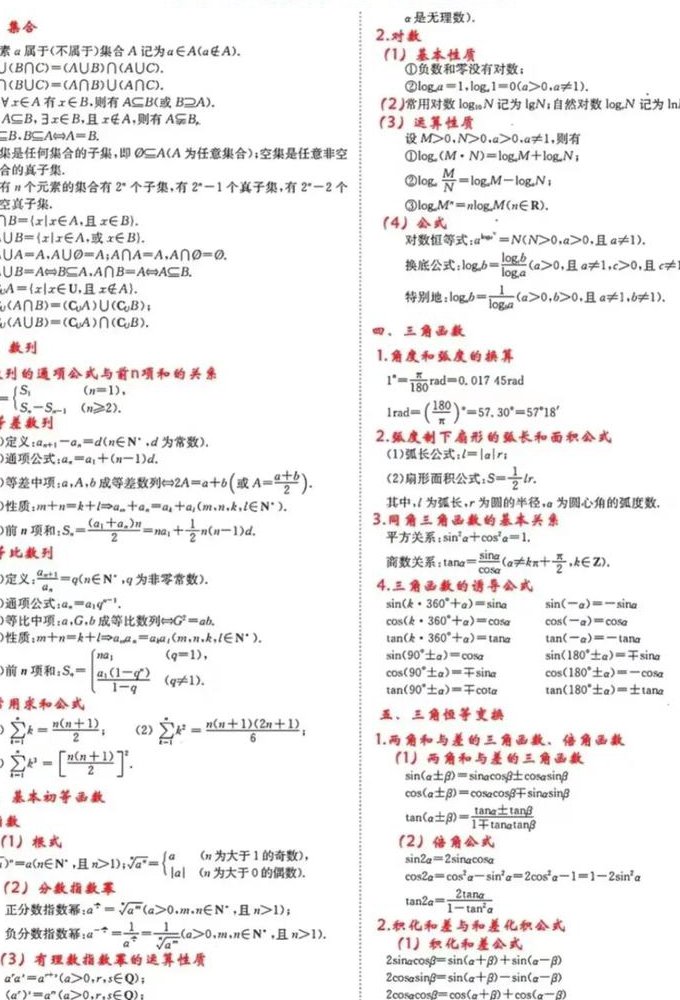 集合
素 a 属于(不属于)集合 A 记为 a∈A(a∉A).
∪(B∩C)=(A∪B)∩(A∪C).
∩(B∪C)=(A∩B)∪(A∩C).
∀x∈A 有 x∈B,则有 A⊆B(或 B⊇A).
A⊆B,∃x∈B,且 x∉A,则有 A⫋B.
⊆B,B⊆A⇔A=B.
集是任何集合的子集,即 ∅⊆A(A 为任意集合);空集是任意非空
合的真子集.
有 n 个元素的集合有 2ⁿ 个子集,有 2ⁿ−1 个真子集,有 2ⁿ−2 个
空真子集.
∩B={x|x∈A,且 x∈B}.
∪B={x|x∈A,或 x∈B}.
∪A=A,A∪∅=A;A∩A=A,A∩∅=∅.
∪B=A⇔B⊆A,A∩B=A⇔A⊆B.
ᵤA={x|x∈U,且 x∉A}.
ᵤ(A∩B)=(∁ᵤA)∪(∁ᵤB);
ᵤ(A∪B)=(∁ᵤA)∩(∁ᵤB).
数列
列的通项公式与前n项和的关系
={S₁ (n=1),
Sₙ−Sₙ₋₁ (n≥2).
等差数列
)定义:aₙ₊₁−aₙ=d(n∈N*,d 为常数).
)通项公式:aₙ=a₁+(n−1)d.
)等差中项:a,A,b 成等差数列⇔2A=a+b(或 A=(a+b)/2).
)性质:m+n=k+l⇒aₘ+aₙ=aₖ+aₗ(m,n,k,l∈N*).
)前 n 项和:Sₙ=(a₁+aₙ)n/2=na₁+1/2 n(n−1)d.
等比数列
)定义:aₙ₊₁/aₙ=q(n∈N*,q 为非零常数).
)通项公式:aₙ=a₁qⁿ⁻¹.
)等比中项:a,G,b 成等比数列⇔G²=ab.
)性质:m+n=k+l⇒aₘaₙ=aₖaₗ(m,n,k,l∈N*).
)前 n 项和:Sₙ={na₁ (q=1),
a₁(1−qⁿ)/(1−q) (q≠1).
常用求和公式
) ∑ₖ₌₁ⁿ k=n(n+1)/2; (2) ∑ₖ₌₁ⁿ k²=n(n+1)(2n+1)/6;
) ∑ₖ₌₁ⁿ k³=[n(n+1)/2]².
基本初等函数
指数
(1) 根式
)ⁿ=a(n∈N*,且 n>1);ⁿ√aⁿ={a (n 为大于 1 的奇数),
|a| (n 为大于 0 的偶数).
(2) 分数指数幂
正分数指数幂:a^(m/n)=ⁿ√aᵐ(a>0,m,n∈N*,且 n>1);
负分数指数幂:a^(−m/n)=1/a^(m/n)=1/ⁿ√aᵐ(a>0,m,n∈N*,且 n>1).
(3) 有理数指数幂的运算性质
aʳaˢ=aʳ⁺ˢ(a>0,r,s∈Q);
(aʳ)ˢ=aʳˢ(a>0,r,s∈Q);
α 是无理数).
2.对数
(1) 基本性质
①负数和零没有对数;
②logₐa=1,logₐ1=0(a>0,a≠1).
(2)常用对数 log₁₀N 记为 lgN;自然对数 logₑN 记为 ln
(3) 运算性质
设 M>0,N>0,a>0,a≠1,则有
①logₐ(M·N)=logₐM+logₐN;
②logₐ M/N=logₐM−logₐN;
③logₐMⁿ=nlogₐM(n∈R).
(4) 公式
对数恒等式:a^(logₐN)=N(N>0,a>0,且 a≠1).
换底公式:logₐb=log_c b/log_c a(a>0,且 a≠1,c>0,且 c≠1
特别地:logₐb=1/log_b a(a>0,b>0,且 a≠1,b≠1).
四、三角函数
1.角度和弧度的换算
1°=π/180 rad=0.017 45rad
1rad=(180/π)°=57.30°=57°18′
2.弧度制下扇形的弧长和面积公式
(1)弧长公式:l=|α|r;
(2)扇形面积公式:S=1/2 lr.
其中,l 为弧长,r 为圆的半径,α 为圆心角的弧度数.
3.同角三角函数的基本关系
平方关系:sin²α+cos²α=1.
商数关系:tanα=sinα/cosα(α≠kπ+π/2,k∈Z).
4.三角函数的诱导公式
sin(k·360°+α)=sinα sin(−α)=−sinα
cos(k·360°+α)=cosα cos(−α)=cosα
tan(k·360°+α)=tanα tan(−α)=−tanα
sin(90°±α)=cosα sin(180°±α)=∓sinα
cos(90°±α)=∓sinα cos(180°±α)=−cosα
tan(90°±α)=∓cotα tan(180°±α)=±tanα
五、三角恒等变换
1.两角和与差的三角函数、倍角函数
(1) 两角和与差的三角函数
sin(α±β)=sinαcosβ±cosαsinβ
cos(α±β)=cosαcosβ∓sinαsinβ
tan(α±β)=(tanα±tanβ)/(1∓tanαtanβ)
(2) 倍角公式
sin2α=2sinαcosα
cos2α=cos²α−sin²α=2cos²α−1=1−2sin²α
tan2α=2tanα/(1−tan²α)
2.积化和差与和差化积公式
(1) 积化和差公式
2sinαcosβ=sin(α+β)+sin(α−β)
2cosαsinβ=sin(α+β)−sin(α−β)
2cosαcosβ=cos(α+β)+cos(α−β)